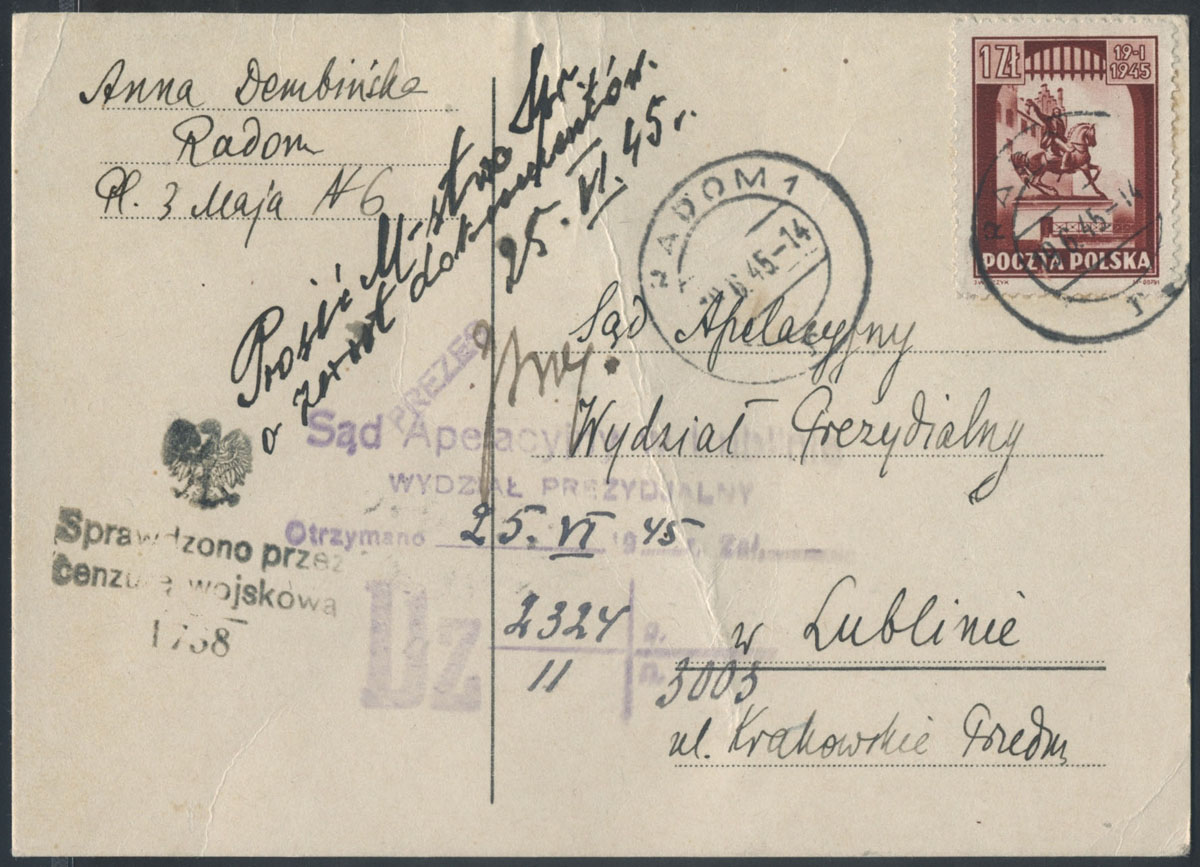 Anna Dembińska
Radom
Pl. 3 Maja № 6
Prosić M-stwo Spr.
o zwrot dokumentów.
25. VI. 45 r.
1 Zł
19-I
1945
POCZTA POLSKA
RADOM 1
6.45-14
19.6.45-14
Sąd Apelacyjny
Wydział Prezydialny
w Lublinie
3003
ul. Krakowskie Przedm
PREZES
Sąd Apelacyjny w Lublinie
WYDZIAŁ PREZYDJALNY
Otrzymano 25. VI 1945 r. Zał.
Dz 2324
11
Sprawdzono przez
cenzurę wojskową
1738